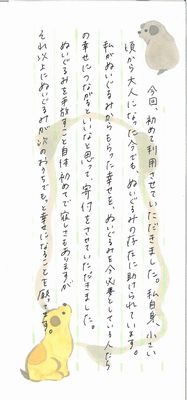 今回、初めて利用させていただきました。私自身、小さい
頃から大人になった今でも、ぬいぐるみの存在に助けられています。
私がぬいぐるみからもらった幸せを、ぬいぐるみを今必要としている人たち
の幸せにつながるといいなと思って、寄付をさせていただきました。
ぬいぐるみを手放すこと自体初めてで寂しさもありますが
それ以上にぬいぐるみが次のおうちでもっと幸せになることを願ってます。